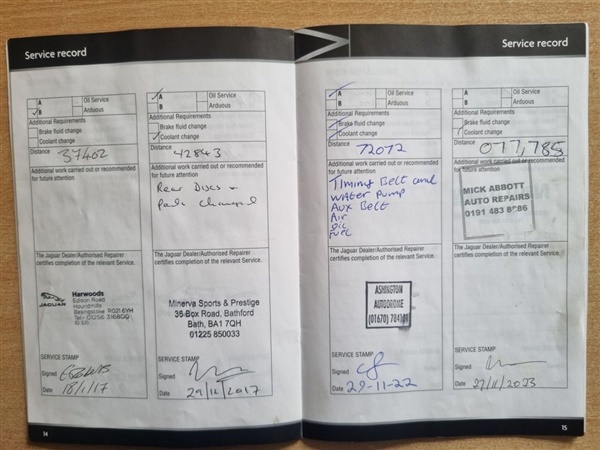 Service record
A
B
Oil Service
Arduous
Additional Requirements
Brake fluid change
Coolant change
Distance 37402
Additional work carried out or recommended
for future attention
The Jaguar Dealer/Authorised Repairer
certifies completion of the relevant Service.
JAGUAR
Harwoods
Edison Road
Houndmills
Basingstoke RG21 6YH
SERVICE STAMP
Signed
Date 18/1/17
14
A
B
Oil Service
Arduous
Additional Requirements
Brake fluid change
Coolant change
Distance 42843
Additional work carried out or recommended
for future attention
Rear Discs +
pads changed
The Jaguar Dealer/Authorised Repairer
certifies completion of the relevant Service.
Minerva Sports & Prestige
36 Box Road, Bathford
Bath, BA1 7QH
01225 850033
SERVICE STAMP
Signed
Date 29/12/2017
Service record
A
B
Oil Service
Arduous
Additional Requirements
Brake fluid change
Coolant change
Distance 72072
Additional work carried out or recommended
for future attention
Timing Belt and
Water Pump
Aux Belt
Air
Oil
Fuel
The Jaguar Dealer/Authorised Repairer
certifies completion of the relevant Service.
ASHINGTON
AUTODROME
(01670)
SERVICE STAMP
Signed
Date 29-11-22
A
B
Oil Service
Arduous
Additional Requirements
Brake fluid change
Coolant change
Distance 077,785
Additional work carried out or recommended
for future attention
MICK ABBOTT
AUTO REPAIRS
0191 483
The Jaguar Dealer/Authorised Repairer
certifies completion of the relevant Service.
SERVICE STAMP
Signed
Date 27/11/2023
15